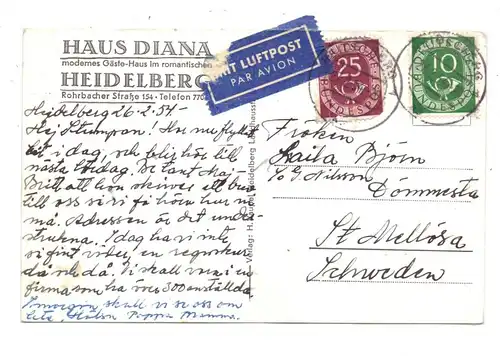 HAUS DIANA
modernes Gäste-Haus im romantischen
HEIDELBERG
Rohrbacher Straße 154 · Telefon 770
MIT LUFTPOST
PAR AVION
25
DEUTSCHE
BUNDESPOST
10
DEUTSCHE
BUNDESPOST
Heidelberg 26-2-54
Hej Stumpan! Har nu flyttat
hit i dag, och
nästa lördag. Be tant Maj-
Britt att hon skriver ett brev
till oss så vi få höra hur ni
må. Adressen är det under-
strukna. I dag har vi inte
så fint väder, en regnskur
då och då. Vi skall nu
firma som har över 300 anställda
I morgon skall vi se oss om
lite. Hälsn Pappa Mamma.
Verlag: H. Heidelberg
Fröken
Laila Björn
c/o G. Nilsson
Dömmesta
St Mellösa
Schweden